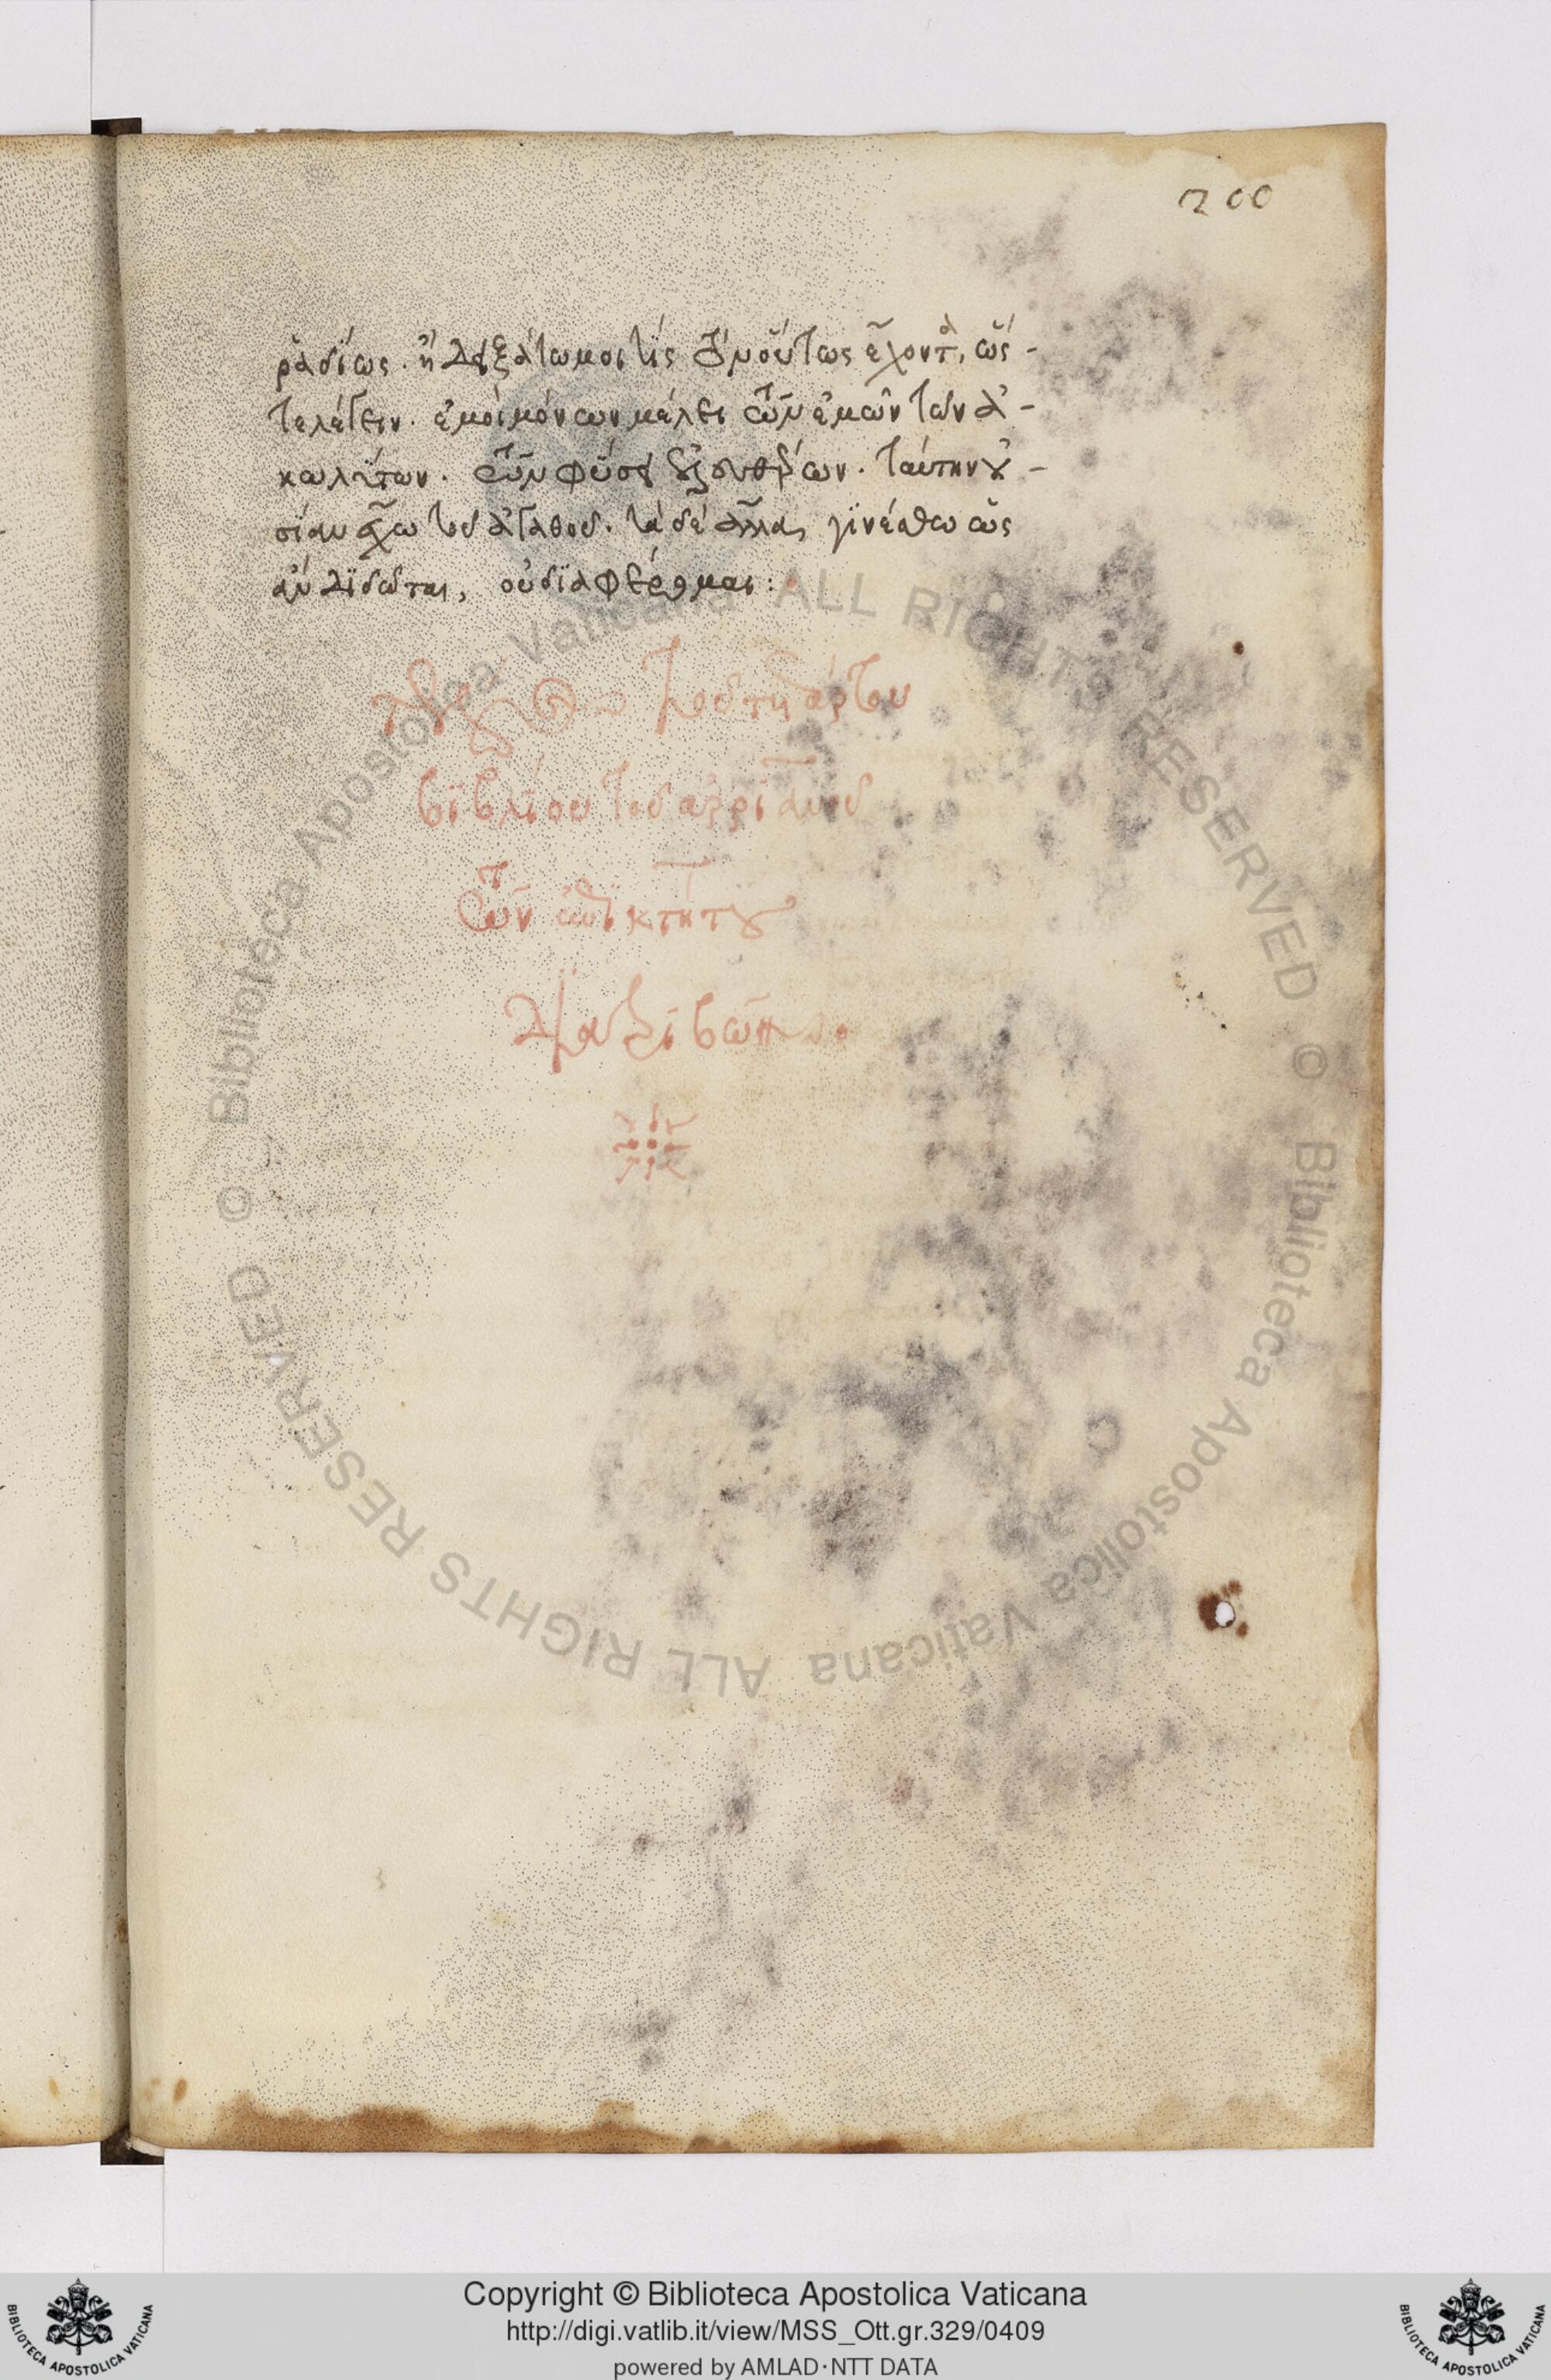 200
ῥαδίως. ἢ δειξάτω μοί τις τὸν οὕτως ἔχοντα, ὡς
λέγειν. ἐμοὶ μόνων μέλει τῶν ἐμῶν τῶν ἀ-
κωλύτων. τῶν φύσει ἐλευθέρων. ταύτην οὐ-
σίαν ἔχω τοῦ ἀγαθοῦ. τὰ δὲ ἄλλα, γινέσθω ὡς
ἂν διδῶται, οὐ διαφέρομαι:
τοῦ τετάρτου
βιβλίου τοῦ ἀρριανοῦ
τῶν ἐπικτήτου
διατριβῶν
© Biblioteca Apostolica Vaticana ALL RIGHTS RESERVED © Biblioteca Apostolica Vaticana ALL RIGHTS RESERVED
Copyright © Biblioteca Apostolica Vaticana
http://digi.vatlib.it/view/MSS_Ott.gr.329/0409
powered by AMLAD·NTT DATA
BIBLIOTECA APOSTOLICA VATICANA
BIBLIOTECA APOSTOLICA VATICANA